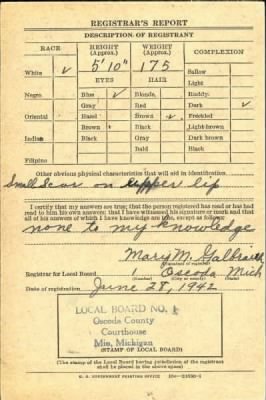 REGISTRAR'S REPORT
DESCRIPTION OF REGISTRANT
RACE HEIGHT (Approx.) WEIGHT (Approx.) COMPLEXION
White ✓ 5'10" 175 Sallow
Light
EYES HAIR
Negro Blue ✓ Blonde Ruddy
Gray Red Dark ✓
Oriental Hazel Brown ✓ Freckled
Brown Black Light brown
Indian Black Gray Dark brown
Bald Black
Filipino
Other obvious physical characteristics that will aid in identification
Small Scar on upper lip
I certify that my answers are true; that the person registered has read or has had
read to him his own answers; that I have witnessed his signature or mark and that
all of his answers of which I have knowledge are true, except as follows:
none to my knowledge
Mary M. Galbraith
Registrar for Local Board 1 Oscoda Mich
Date of registration June 28, 1942
LOCAL BOARD NO. 1
Oscoda County
Courthouse
Mio, Michigan
(STAMP OF LOCAL BOARD)
(The stamp of the Local Board having jurisdiction of the registrant
shall be placed in the above space)
U. S. GOVERNMENT PRINTING OFFICE